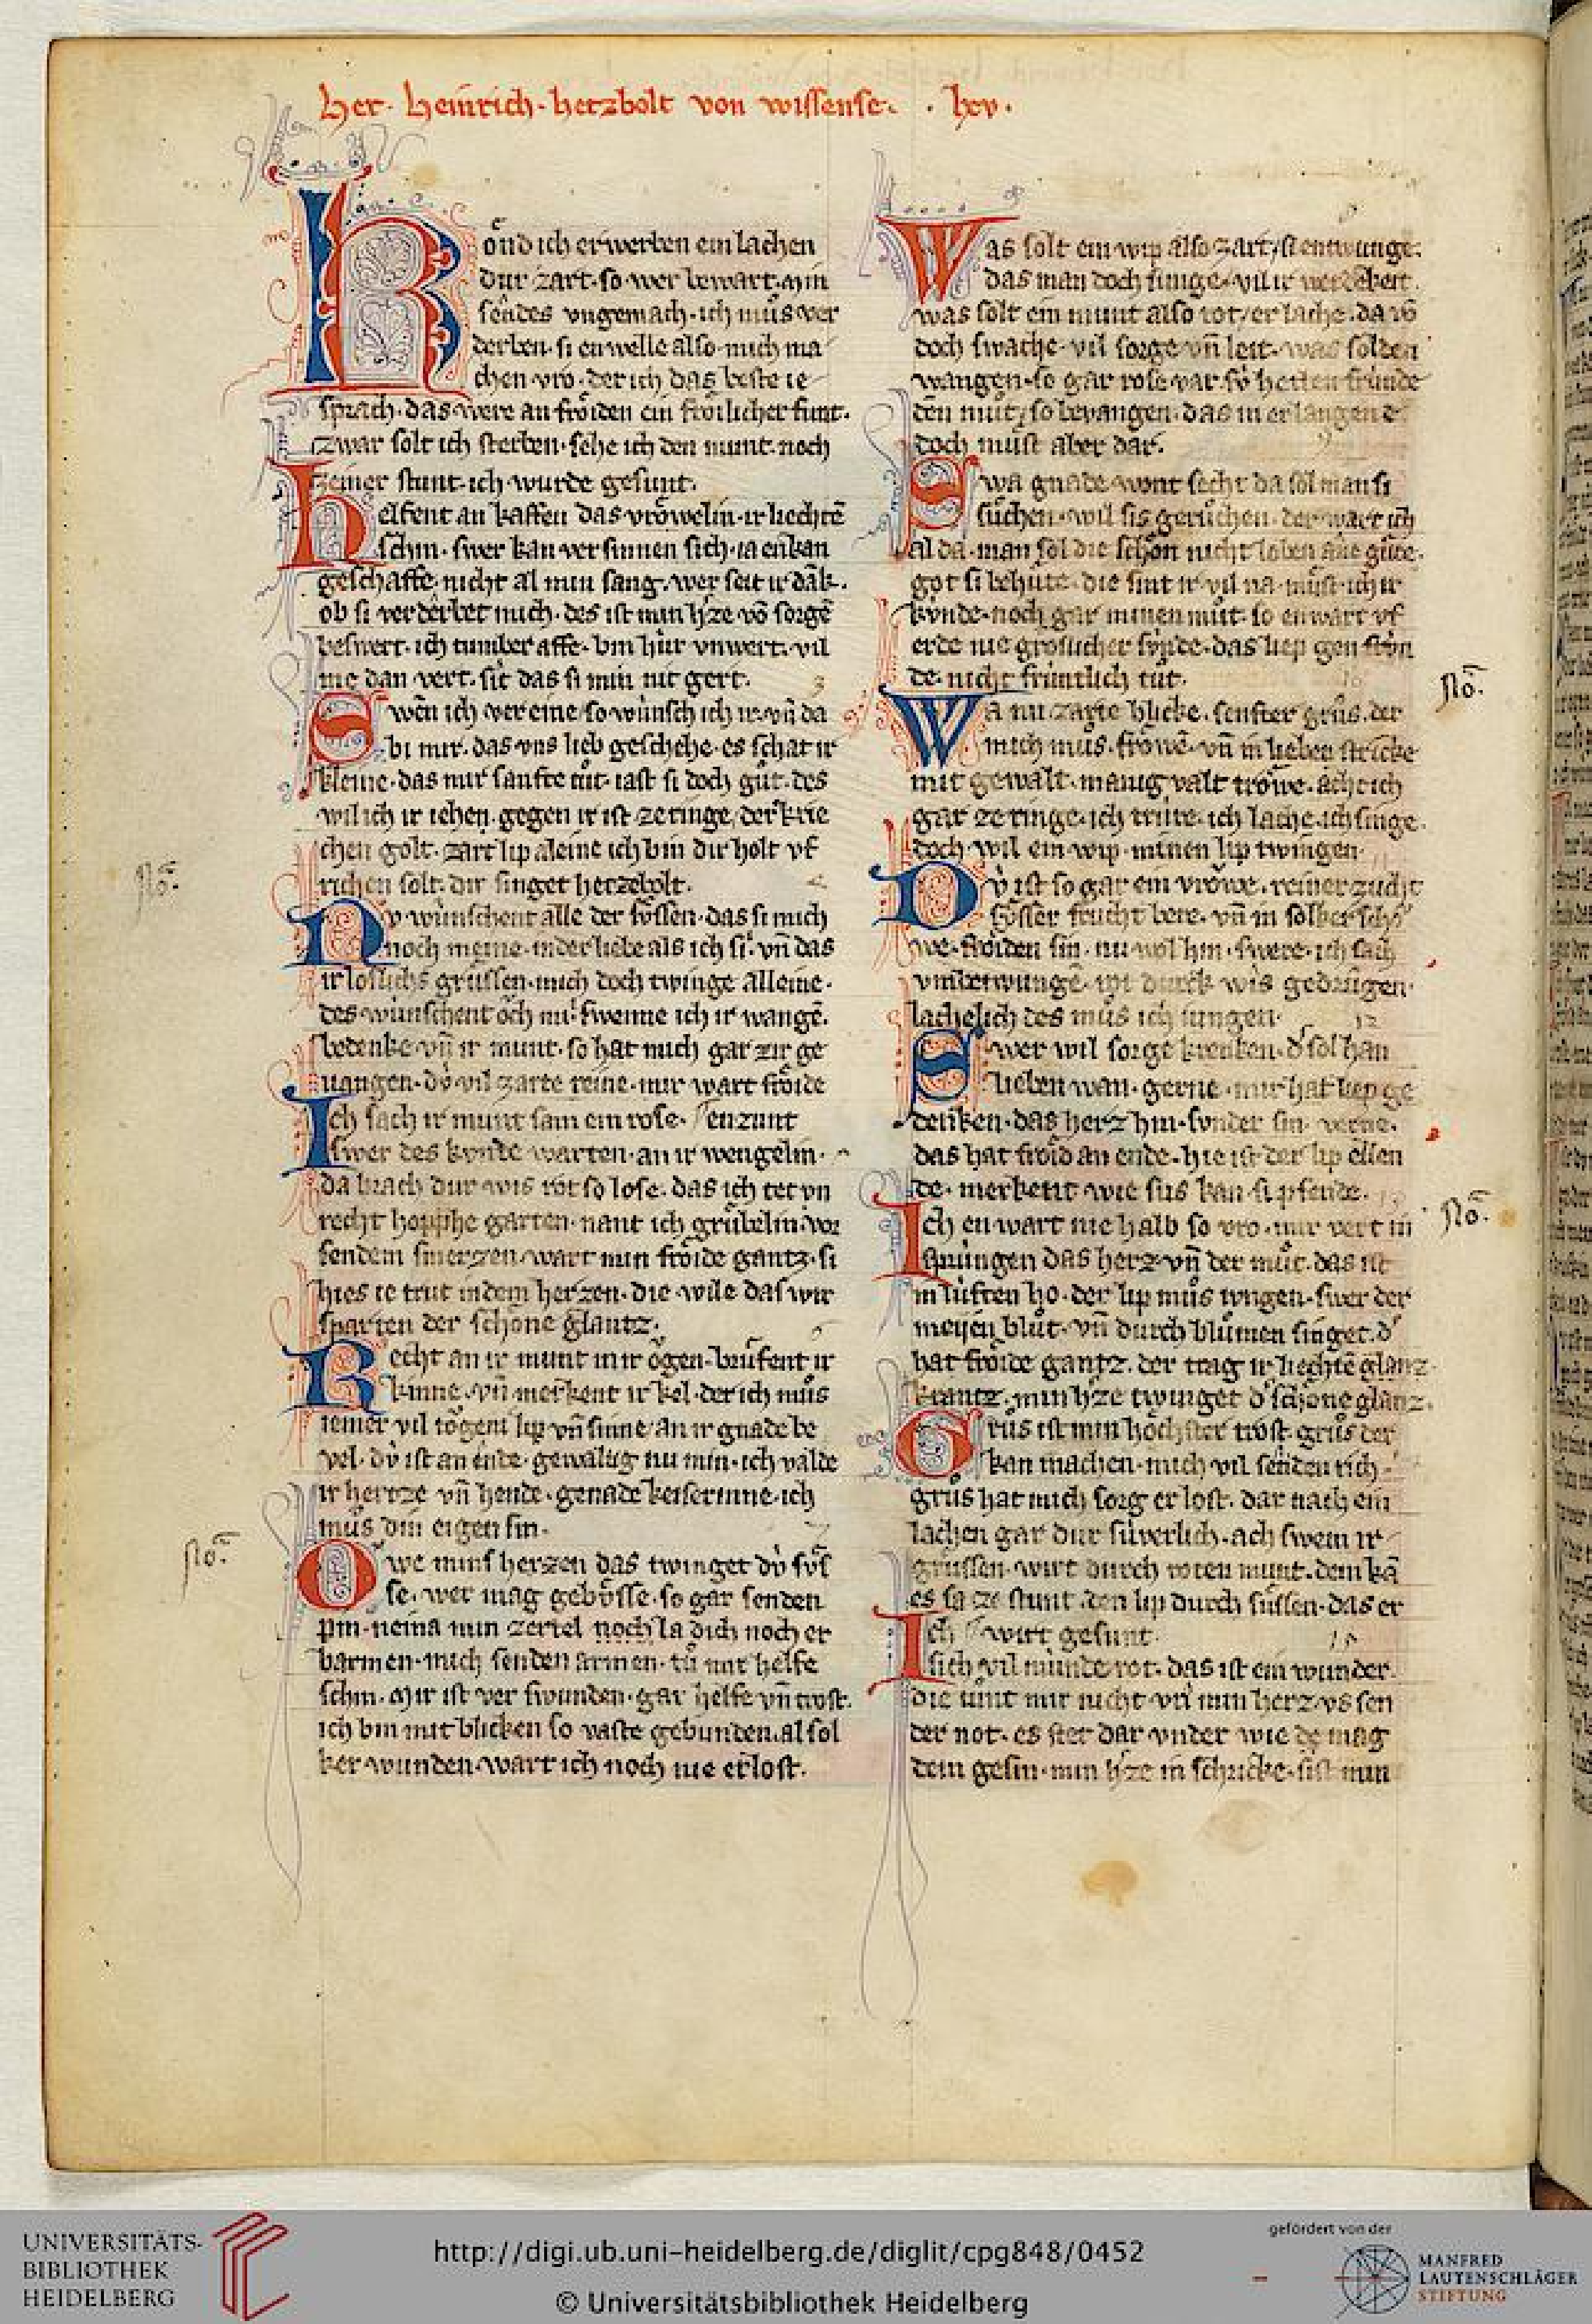 her · heinrich · hetzbolt von wissense · · lxv ·
Kond ich erwerben ein lachen
dur zart · so wer bewart · min
sendes vngemach · ich mus ver
derben · si en welle also mich ma
chen vro · der ich das beste ie
sprach · das were an froiden ein froilicher funt ·
zwar solt ich sterben · sehe ich den munt · noch
zeiner stunt · ich wurde gesunt ·
Helfent an kaffen das vrowelin · ir liechtē
schin · swer kan versinnen sich · ia enkan
geschaffe nicht al min sang · wer seit ir dāk ·
ob si verderbet mich · des ist min h'ze vō sorgē
beswert · ich tumber affe · bin hur vnwert · vil
me dan vert · sit das si min nit gert ·
Swen ich vereine so wunsch ich ir · vn̄ da
bi mir · das vns lieb geschehe · es schat ir
kleine · das mir sanfte tut · iast si doch gut · des
wil ich ir iehen · gegen ir ist ze ringe / der krie
chen golt · zart lip aleine ich bin dir holt vf
richen solt · dir singet hetzebolt ·
Nv wunschent alle der sussen · das si mich
noch meine · in der liebe als ich si · vn̄ das
ir loslichs grussen · mich doch twinge alleine ·
des wunschent och mir swenne ich ir wangē ·
bedenke vn̄ ir munt · so hat mich gar zir ge
uangen · dv vil zarte reine · mir wart froide
Ich sach ir munt sam ein rose · enzunt
swer des kvnde warten · an ir wengelin ·
da brach dur wis rot so lose · das ich tet vn
recht hopphe garten · nant ich grubelin · vor
sendem smerzen · wart min froide gantz · si
hies ie trut in dem herzen · die wile das wir
sparten der schone glantz ·
Recht an ir munt mir ogen · brufent ir
kinne · vn̄ merkent ir kel · der ich mus
iemer vil togent lip vn̄ sinne / an ir gnade be
vel · dv ist an ende · gewaltig nu min · ich valde
ir hertze vn̄ hende · genade keiserinne · ich
mus din eigen sin ·
Owe mins herzen das twinget dv svs
se · wer mag gebvsse · so gar senden
pin · neina min zertel noch la dich noch er
barmen · mich senden armen · tu mir helfe
schin · Mir ist verswunden · gar helfe vn̄ trost ·
ich bin mit blicken so vaste gebunden · al sol
ker wunden · wart ich noch nie erlost ·
Was solt ein wip also zart / si entwunge ·
das man doch sunge · vil ir werdekeit ·
was solt ein munt also rot / er lache · da vō
doch swache · vil sorge vn̄ leit · was solden
wangen · so gar rose var · sv hetten frunde
den mut / so bevangen · das in erlangen d'
doch must aber dar ·
Swa gnade wont secht da sol man si
suchen · wil sis geruchen · der wart ich
al da · man sol die schon nicht loben ane gute ·
got si behute · die sint ir vil na · must ich ir
kvnde · noch gar minen mut · so enwart vf
erde nie groslicher svnde · das liep gen frvn
de · nicht fruntlich tut ·
Wa nu zarte blicke · senfter grus · der
mich mus · frowē · vn̄ in lieben stricke
mit gewalt · manig valt trowe · acht ich
gar ze ringe · ich trure · ich lache · ich singe ·
doch wil ein wip · minen lip twingen ·
Dv ist so gar ein vrowe · reiner zucht
susser frucht bere · vn̄ in solher scho
we · froiden sin · nu wol hin · swere · ich sach
lachelich des mus ich iungen ·
Swer wil sorge krenken · d' sol han
lieben wan · gerne · mir hat liep ge
denken · das herz hin · sunder sin · verne ·
das hat froid an ende · hie ist der lip ellen
de · merkent wie sus kan si pfende ·
Ich enwart nie halb so vro · mir vert in
sprungen das herz · vn̄ der mut · das ist
in luften ho · der lip mus iungen · swer der
meyen blut · vn̄ durch blumen singet · d'
hat froide gantz · der trag ir liechtē glanz
krantz · min h'ze twinget d' schone glanz ·
Grus ist min hochster trost · grus der
kan machen · mich vil senden rich ·
grus hat mich sorg erlost · dar nach ein
lachen gar dur suverlich · ach swem ir
grussen · wirt durch roten munt · dem kā
es sa ze stunt · den lip durch sussen · das er
Ich wirt gesunt ·
sich vil munde rot · das ist ein wunder ·
die nimt mir nicht vn̄ min herz · vs sen
der not · es stet dar vnder wie de mag
dem gesin · min h'ze in schricke · sist min
No
No
No
No
UNIVERSITÄTS-
BIBLIOTHEK
HEIDELBERG
http://digi.ub.uni-heidelberg.de/diglit/cpg848/0452
© Universitätsbibliothek Heidelberg
gefördert von der
MANFRED
LAUTENSCHLÄGER
STIFTUNG